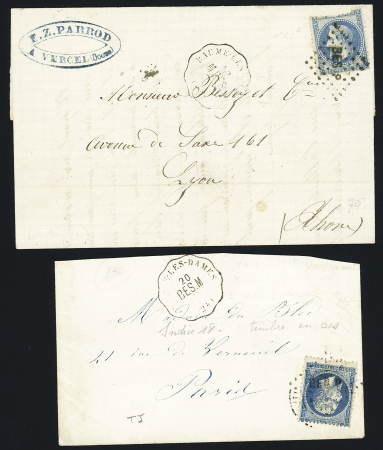 F. Z. PARROD
A VERCEL (Doubs)
BAUME-LES-
Monsieur Bissey et Cie
Avenue de Saxe 161
Lyon
(Rhone)
-LES-DAMES
20
DES.M
Madame du
Indice 18. timbre en
21 rue de Verneuil
Paris
TJ